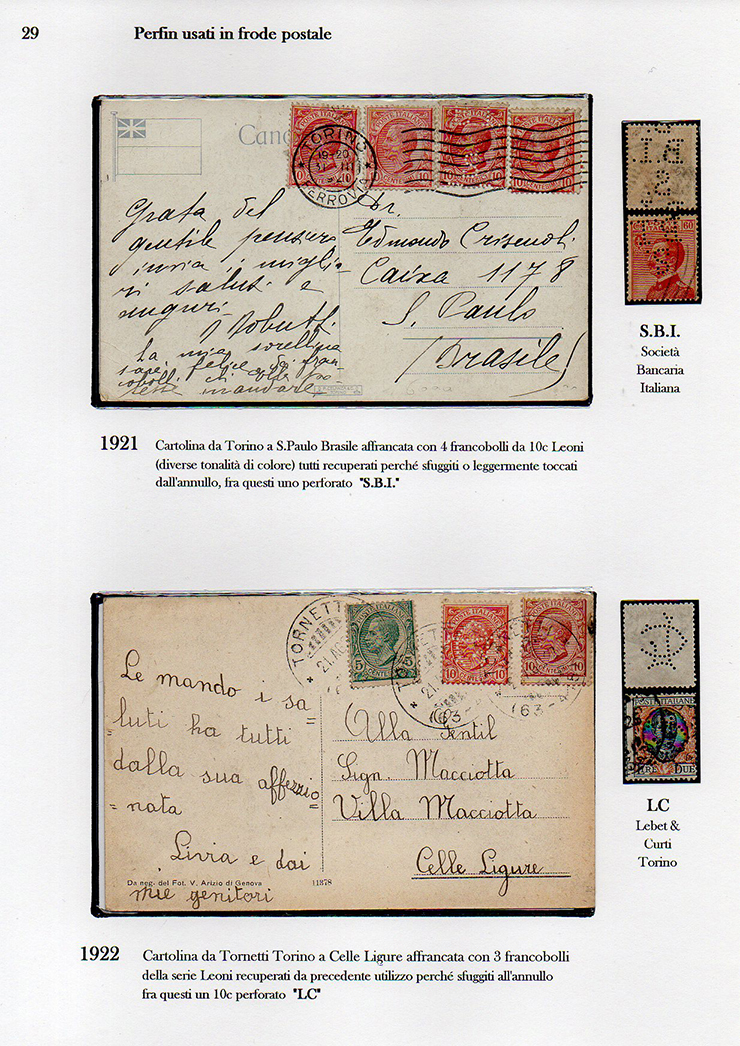 29
Perfin usati in frode postale
TORINO
FERROVIA
Grata del
gentile pensiero
invia i miglio-
ri saluti e
auguri.
La mia sorellina
Edmondo
Caixa 1178
S. Paulo
(Brasile)
S.B.I.
Società
Bancaria
Italiana
1921 Cartolina da Torino a S.Paulo Brasile affrancata con 4 francobolli da 10c Leoni
(diverse tonalità di colore) tutti recuperati perché sfuggiti o leggermente toccati
dall'annullo, fra questi uno perforato "S.B.I."
TORNETTI
POSTE ITALIANE
5
10 CENTESIMI 10
10 CENTESIMI 10
63-4
Le mando i sa
luti ha tutti
dalla sua affezzio
= nata
Livia e dai
mie genitori
Da neg. del Fot. V. Arizio di Genova 11878
Alla Gentil
Sign. Macciotta
Villa Macciotta
Celle Ligure
POSTE ITALIANE
LIRE DUE
LC
Lebet &
Curti
Torino
1922 Cartolina da Tornetti Torino a Celle Ligure affrancata con 3 francobolli
della serie Leoni recuperati da precedente utilizzo perché sfuggiti all'annullo
fra questi un 10c perforato "LC"